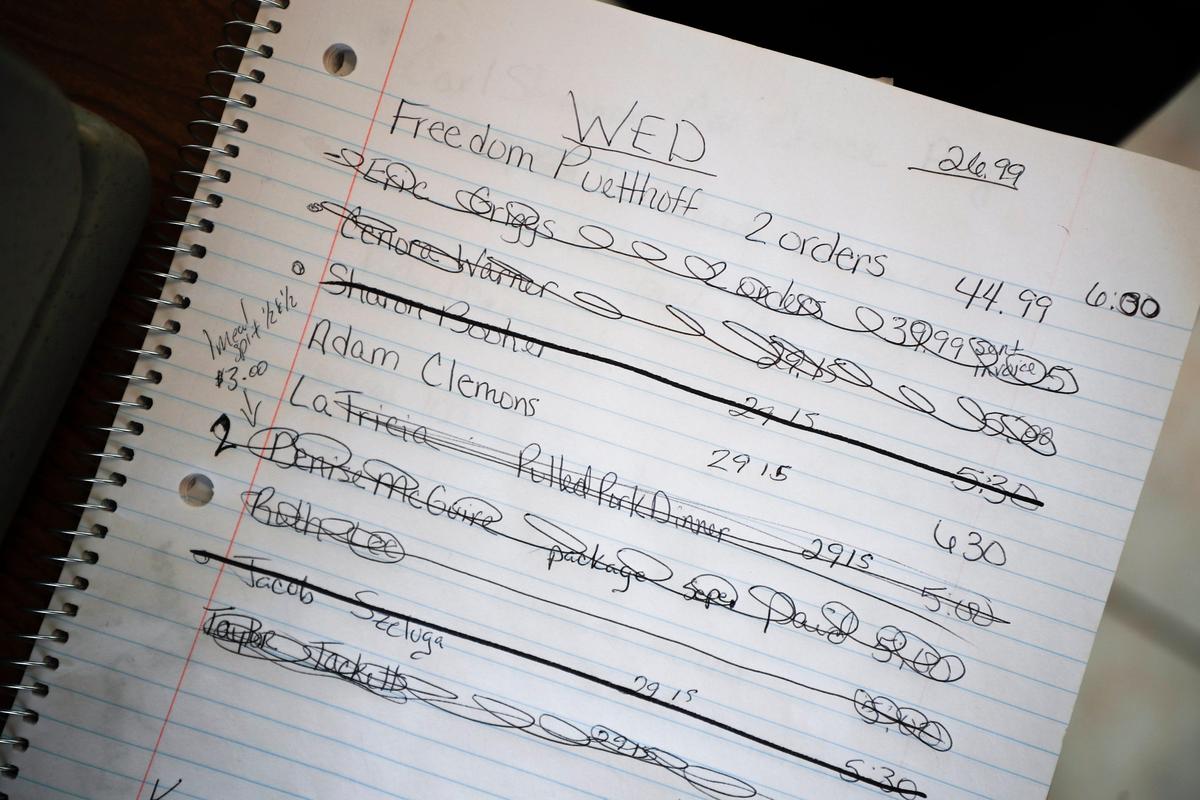 WED
26.99
Freedom Puetthoff 2 orders 44.99 6:00
Eric Griggs 2 orders 39.99 sent invoice 5
Lenora Warner 29.15 5:00
Sharon Booher 29 15 5:30
Adam Clemons 29 15 630
La Tricia Pulled Pork Dinner 2915 5:00
1 meal
split 1/2 & 1/2
$3.00
2 Denise McGuire package Super Paid 5:00
Ruth Lee
Jacob Szeluga 29 15 5:30
Taylor Jacketts 2915